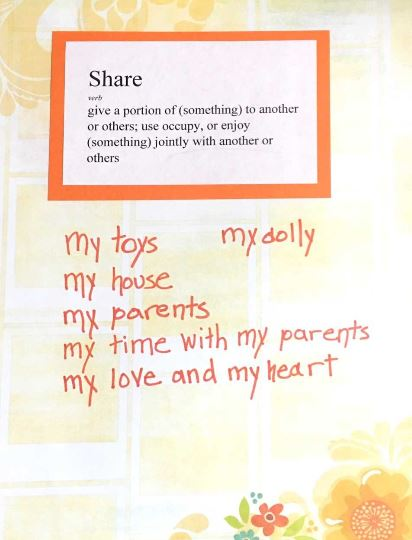 Share
verb
give a portion of (something) to another
or others; use occupy, or enjoy
(something) jointly with another or
others
my toys my dolly
my house
my parents
my time with my parents
my love and my heart